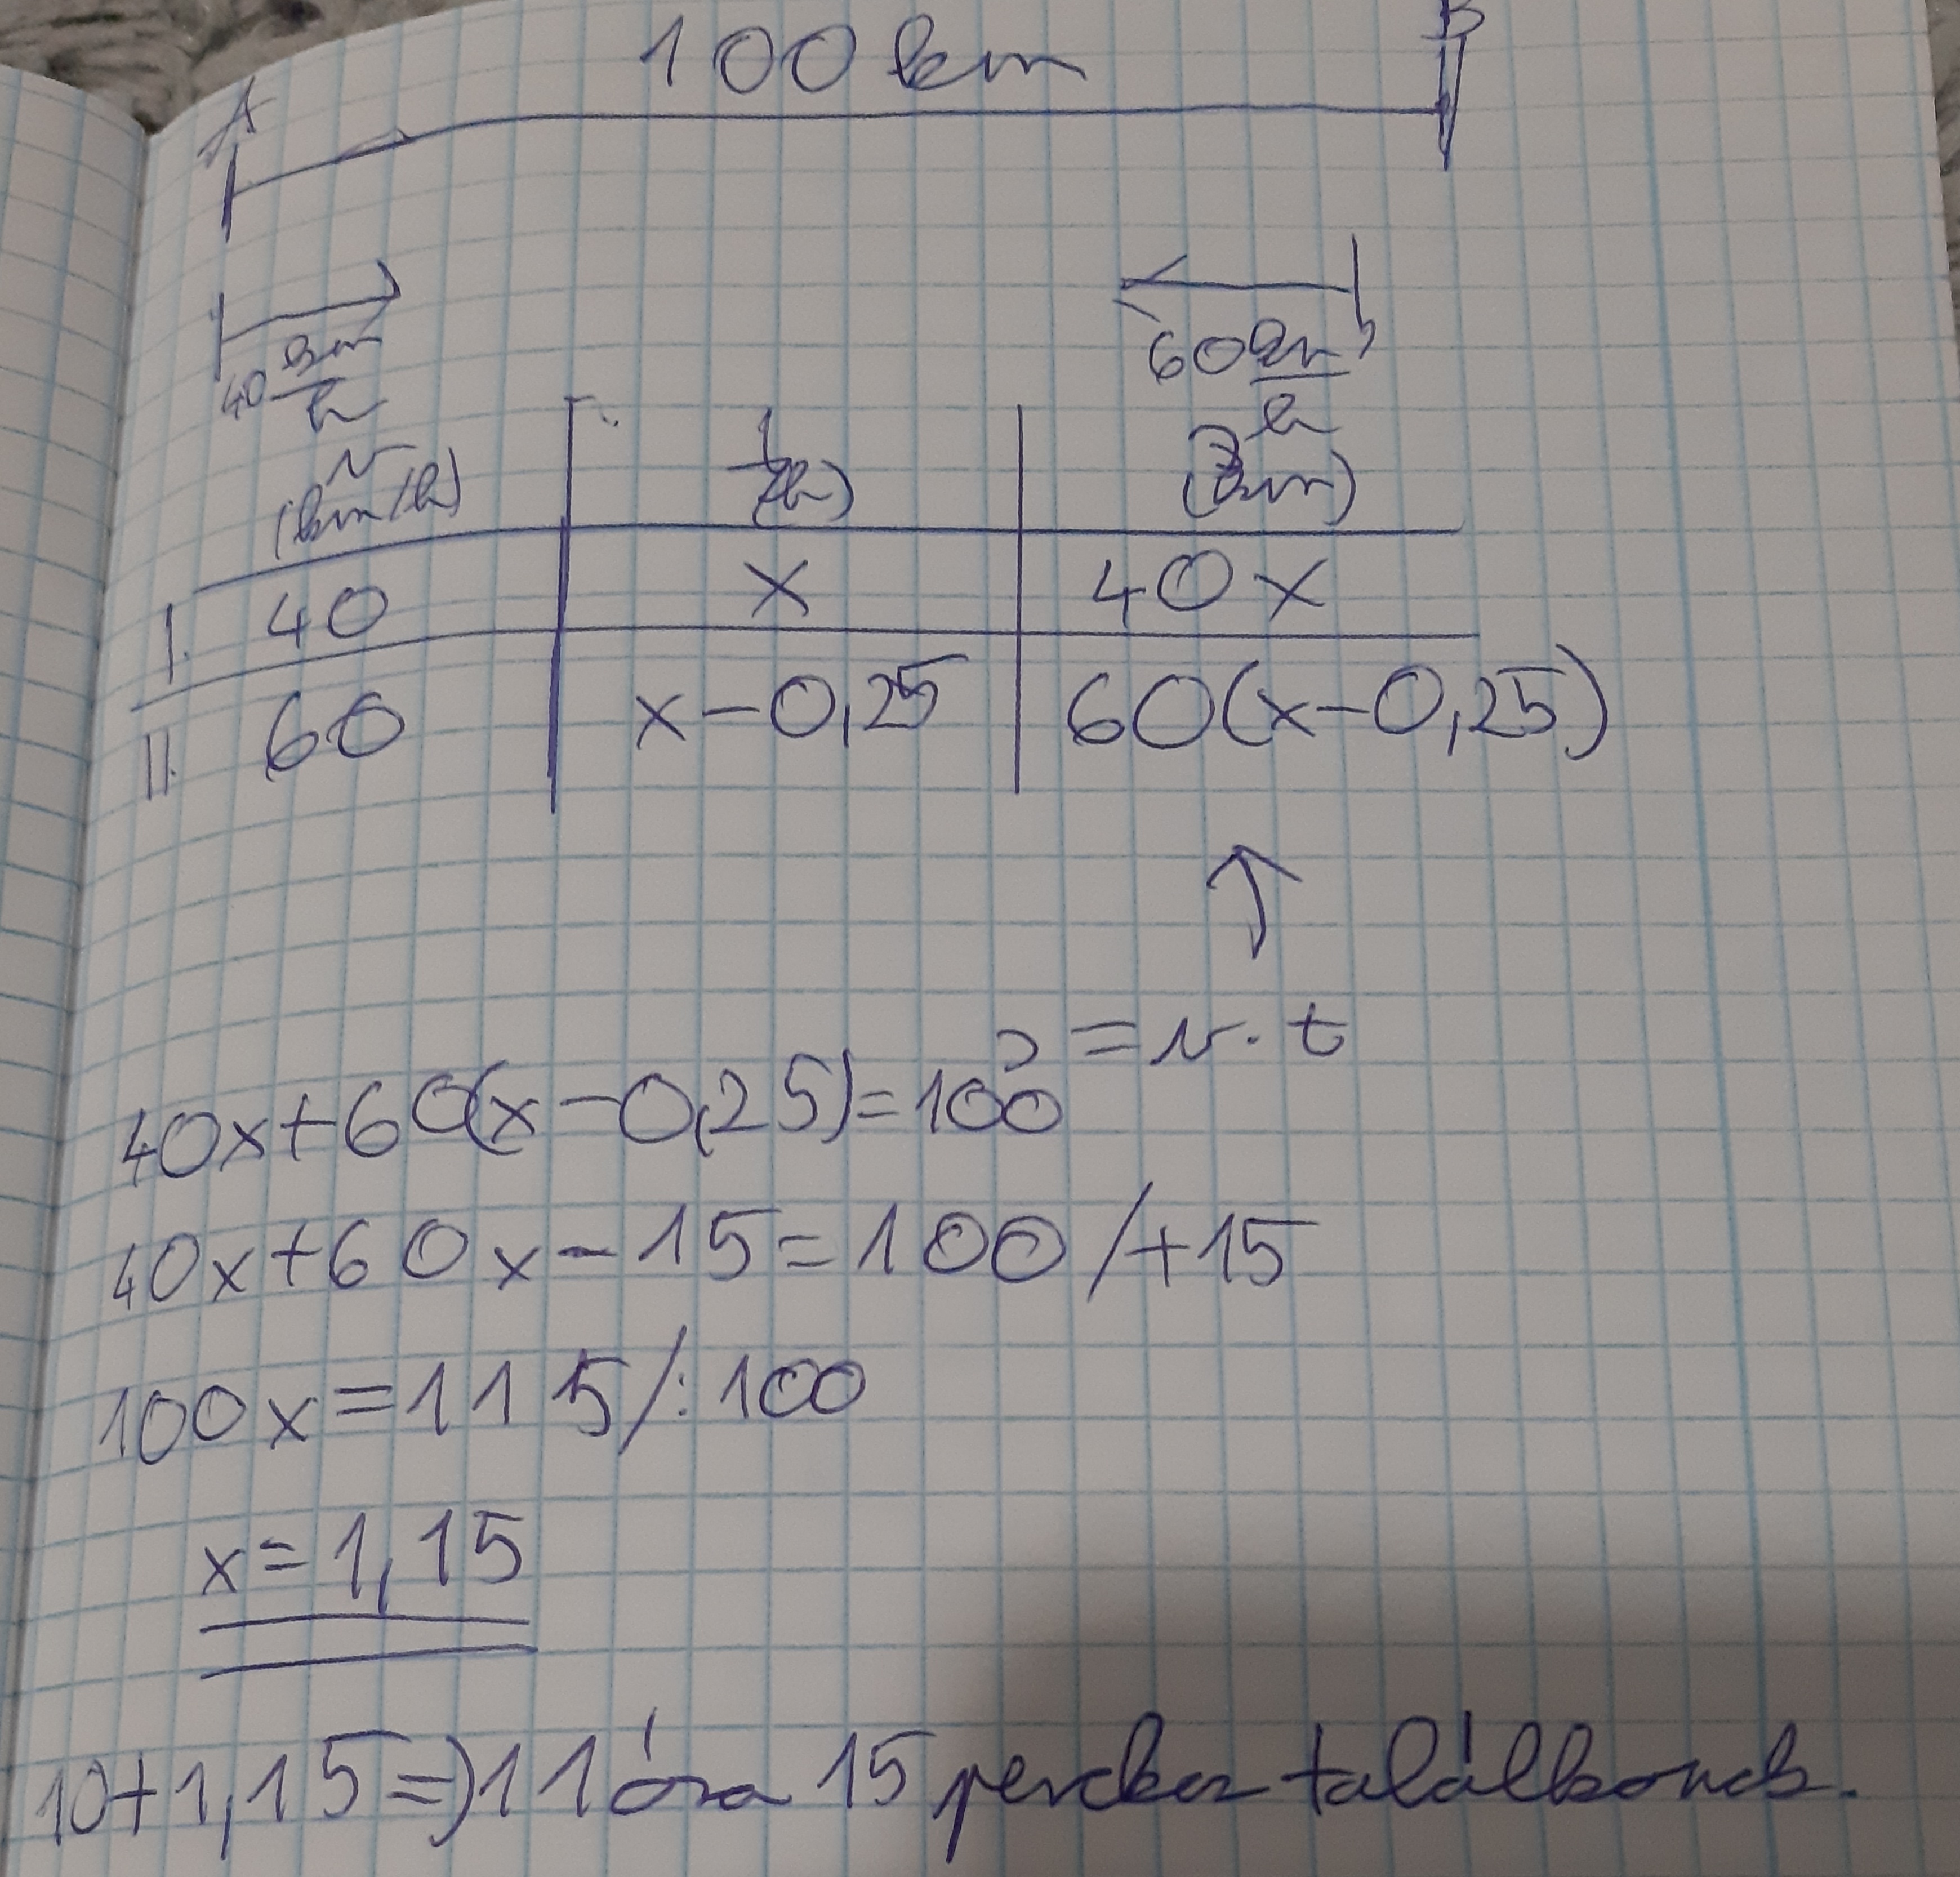 100 km
A B
40 km/h 60 km/h
v (km/h) t (h) s (km)
I. 40 x 40x
II. 60 x-0,25 60(x-0,25)
s = v · t
40x+60(x-0,25)=100
40x+60x-15=100 /+15
100x=115/:100
x=1,15
10+1,15=)11 óra 15 perckor találkoznak.